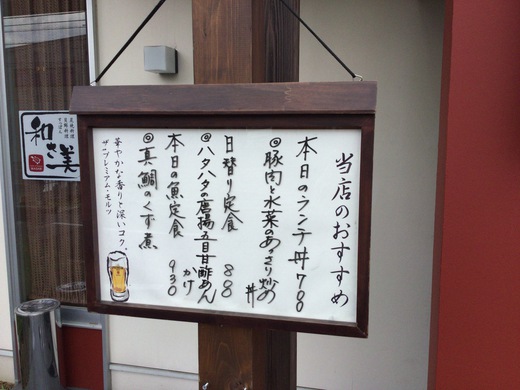 当店のおすすめ
本日のランチ丼 700
◎豚肉と水菜のあっさり炒め
丼
日替り定食 880
◎ハタハタの唐揚 五目甘酢あん
かけ
本日の魚定食 930
◎真鯛のくず煮
華やかな香りと深いコク。
ザ・プレミアム・モルツ
和さ美